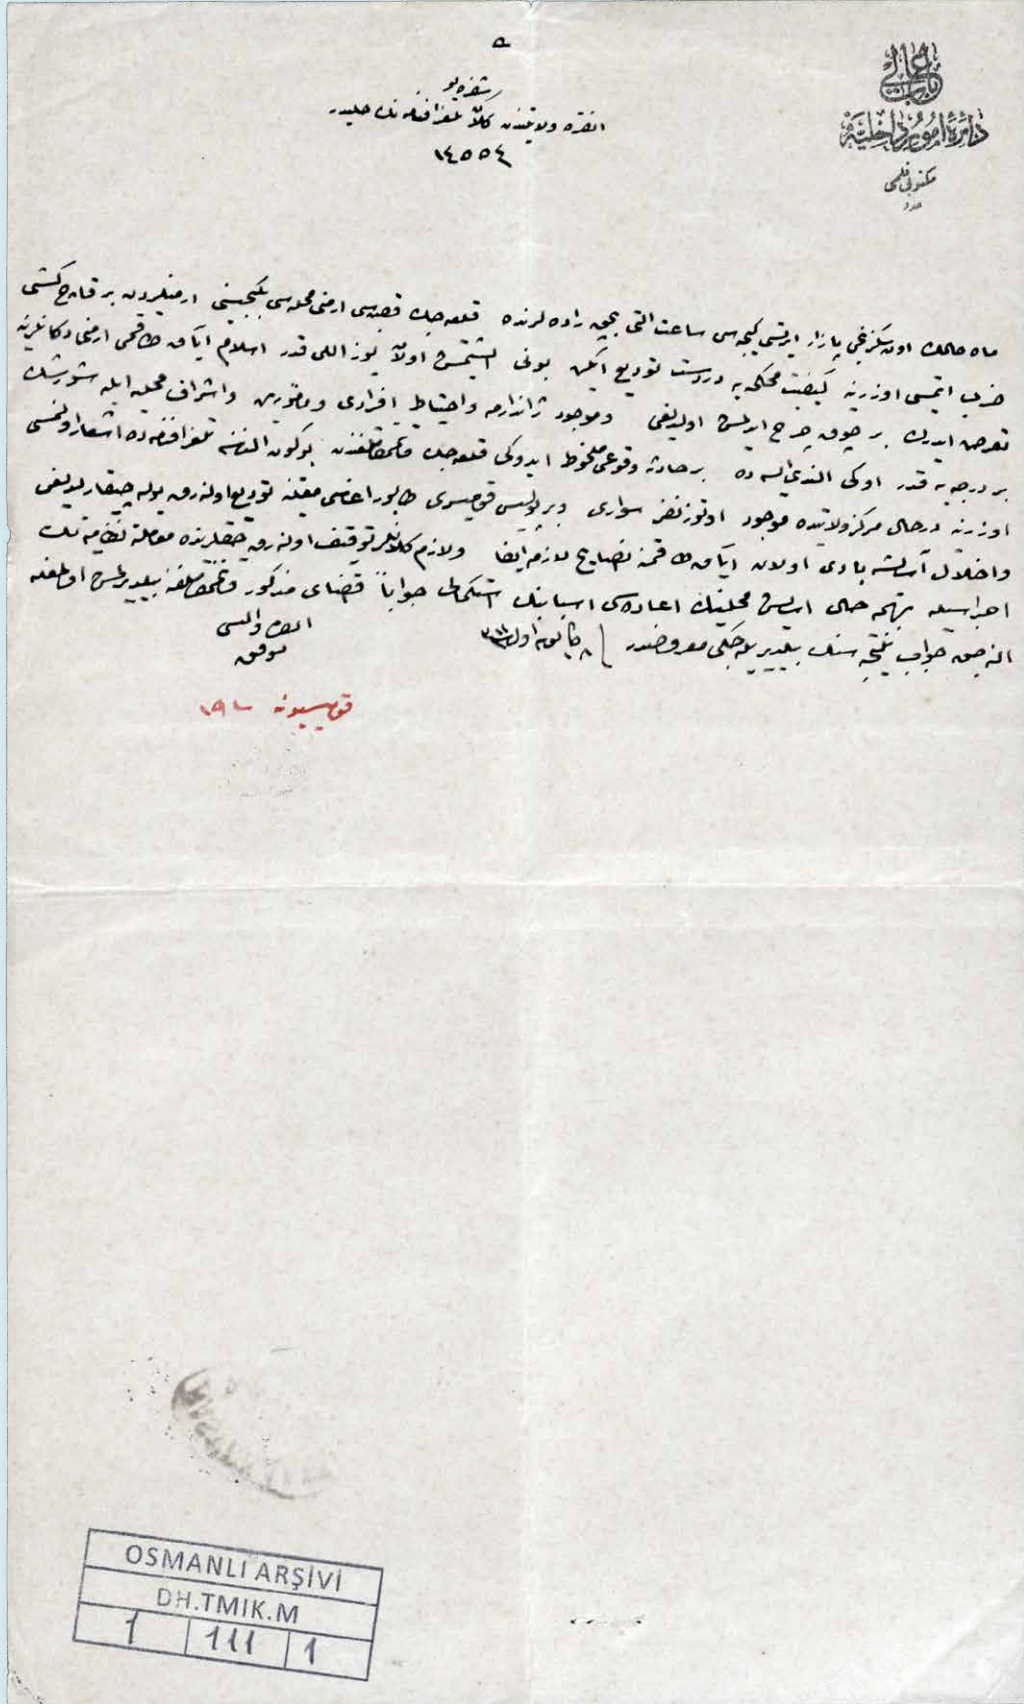 باب عالی
دائرهٔ امور داخلیه
مكتوبی قلمی
عدد
٥
شفره یو
انقره ولایتندن كلاً تلغرافنامه‌نك حلیدر
١٤٥٥٤
ماه حالك اون سكزنجی پازار ایرتسی كیجه‌سی ساعت التی بچق راده‌لرنده قلعه‌جك قصبه‌سی ارمنی محله‌سی بكجیسنی ارمنیلردن بر قاچ كشی
ضرب ایتمسی اوزرینه كیفیت محكمه‌یه دردست تودیع ایكن بونی ایشتمش اولان یوز اللی قدر اسلام ایاق طاقمی ارمنی دكانلرینه
تعرض ایدرك بر چوق جرح ایدلمش اولدیغی و موجود ژاندارمه و احتیاط افرادی و مأمورین و اشراف محلیه ایله شورشك
بر درجه‌یه قدر اوكی النمش ایسه‌ده بر حادثه وقوعی ملحوظ ایدوكی قلعه‌جك قائممقاملغندن بوكون النان تلغرافنامه‌ده اشعار اولنمسی
اوزرینه درحال مركز ولایتده موجود اوتوز نفر سواری و بر پولیس قومیسری طابور اغاسی معیتنه تودیع اولنه‌رق یوله چیقاریلدیغی
و اخلال آسایشه بادی اولان ایاق طاقمنه نصایح لازمه ایفا و لازم كلانلر توقیف اولنه‌رق حقلرنده معاملهٔ نظامیه‌نك
اجراسیله بهمه حال اسایش محلینك اعاده‌سی اسبابنك استكمالی جواباً قضای مذكور قائممقاملغنه بیلدیرلمش اولمغله
النه‌جق جواب نتیجه‌سنك بیلدیریله‌جكی معروضدر ٨ كانون اول ٣١١
انقره والیسی
توفیق
قومیسیونه ١٩
OSMANLI ARŞİVİ
DH.TMIK.M
1 111 1